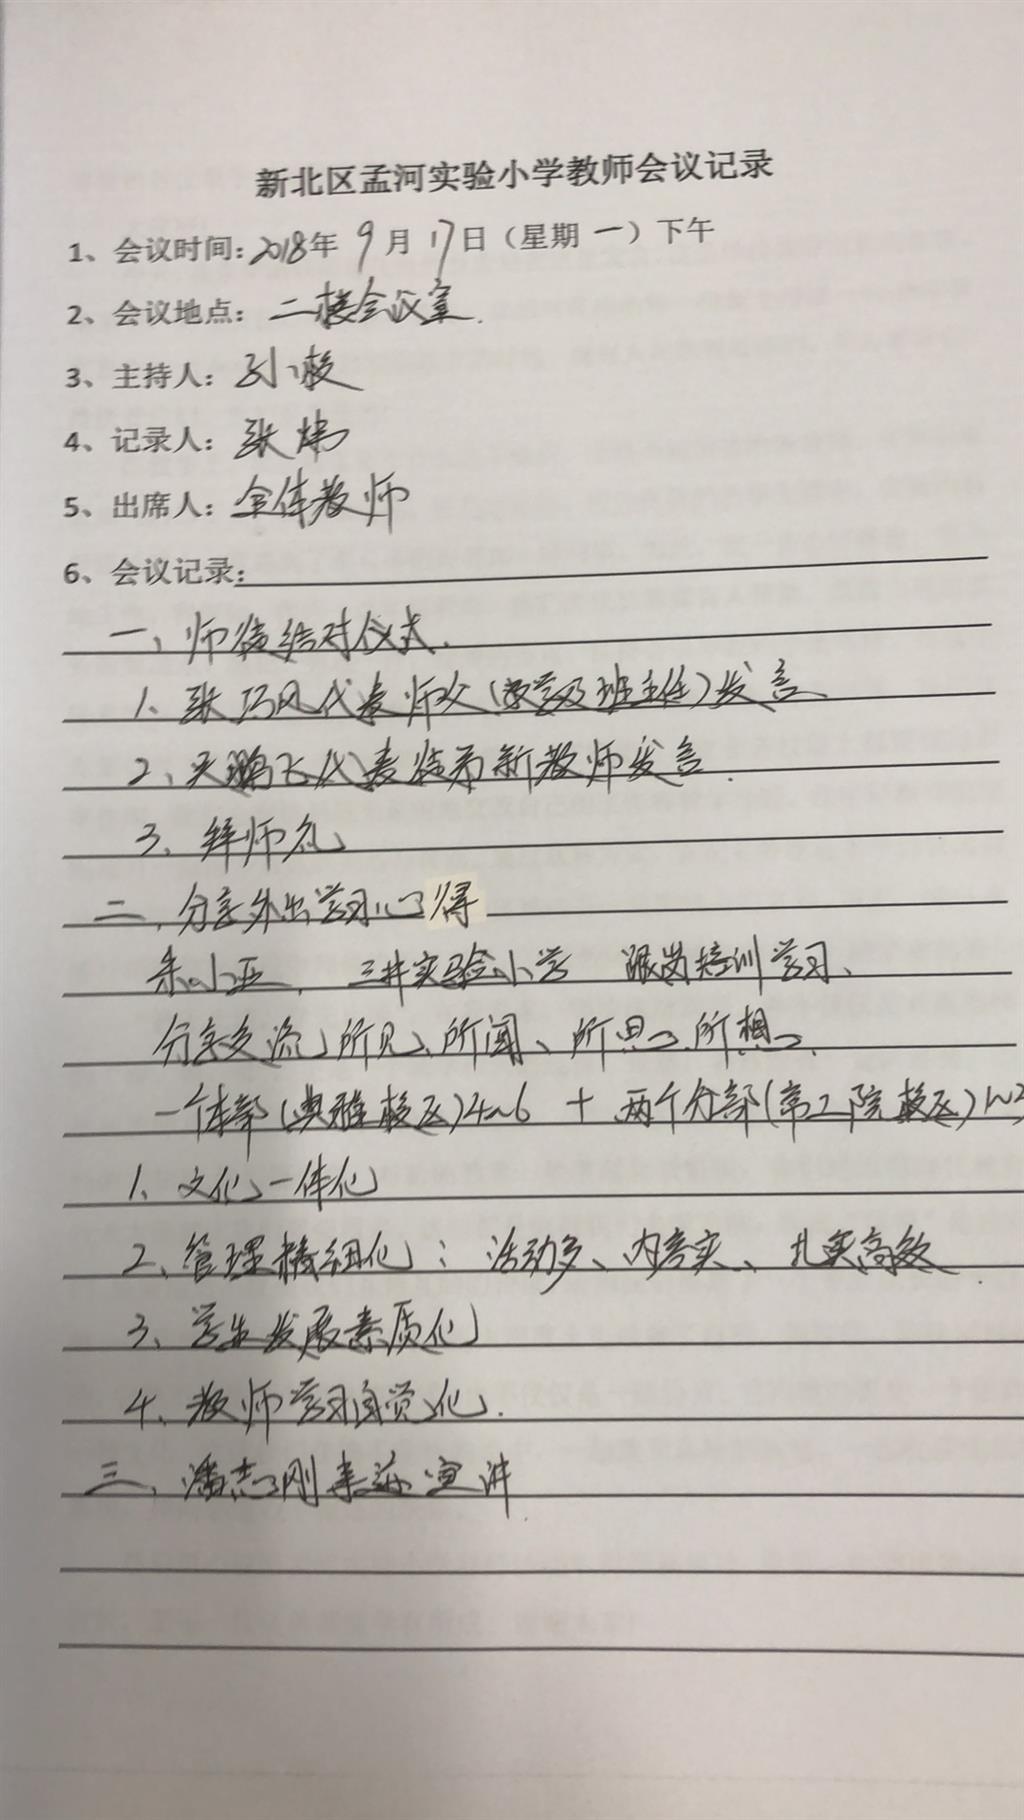 新北区孟河实验小学教师会议记录
1、会议时间：2018年 9 月 17日（星期 一）下午
2、会议地点：二楼会议室.
3、主持人：孙校
4、记录人：张炜
5、出席人：全体教师
6、会议记录：
一、师徒结对仪式.
1、张巧凤代表师父(教学及班主任)发言.
2、鹏飞代表徒弟新教师发言.
3、拜师礼
二、分享外出学习心得
朱小亚, 三井实验小学 跟岗培训学习、
分享交流所见、所闻、所思、所想、
一个本部(典雅校区)4~6 + 两个分部(常工院校区)1~3
1、文化一体化
2、管理精细化：活动多、内容实、扎实高效.
3、学生发展素质化
4、教师学习自觉化.
三、潘志刚 宣讲.